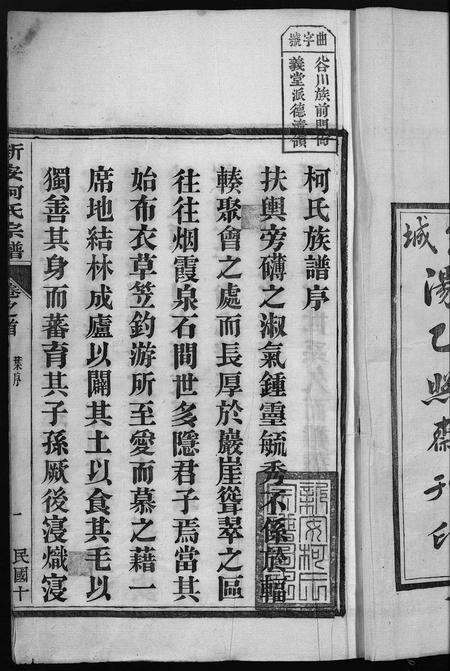 城
湯乙照齋刊印
曲字號
谷川族前門尚
義堂派德濟領
柯氏族譜序
扶輿旁礴之淑氣鍾靈毓秀不係於輻
輳聚會之處而長厚於巖崖聳翠之區
往往烟霞泉石間世多隱君子焉當其
始布衣草笠釣游所至愛而慕之藉一
席地結林成廬以闢其土以食其毛以
獨善其身而蕃育其子孫厥後寖熾寖
新安柯氏宗譜
卷之首
葉序
一
民國十
新安柯氏